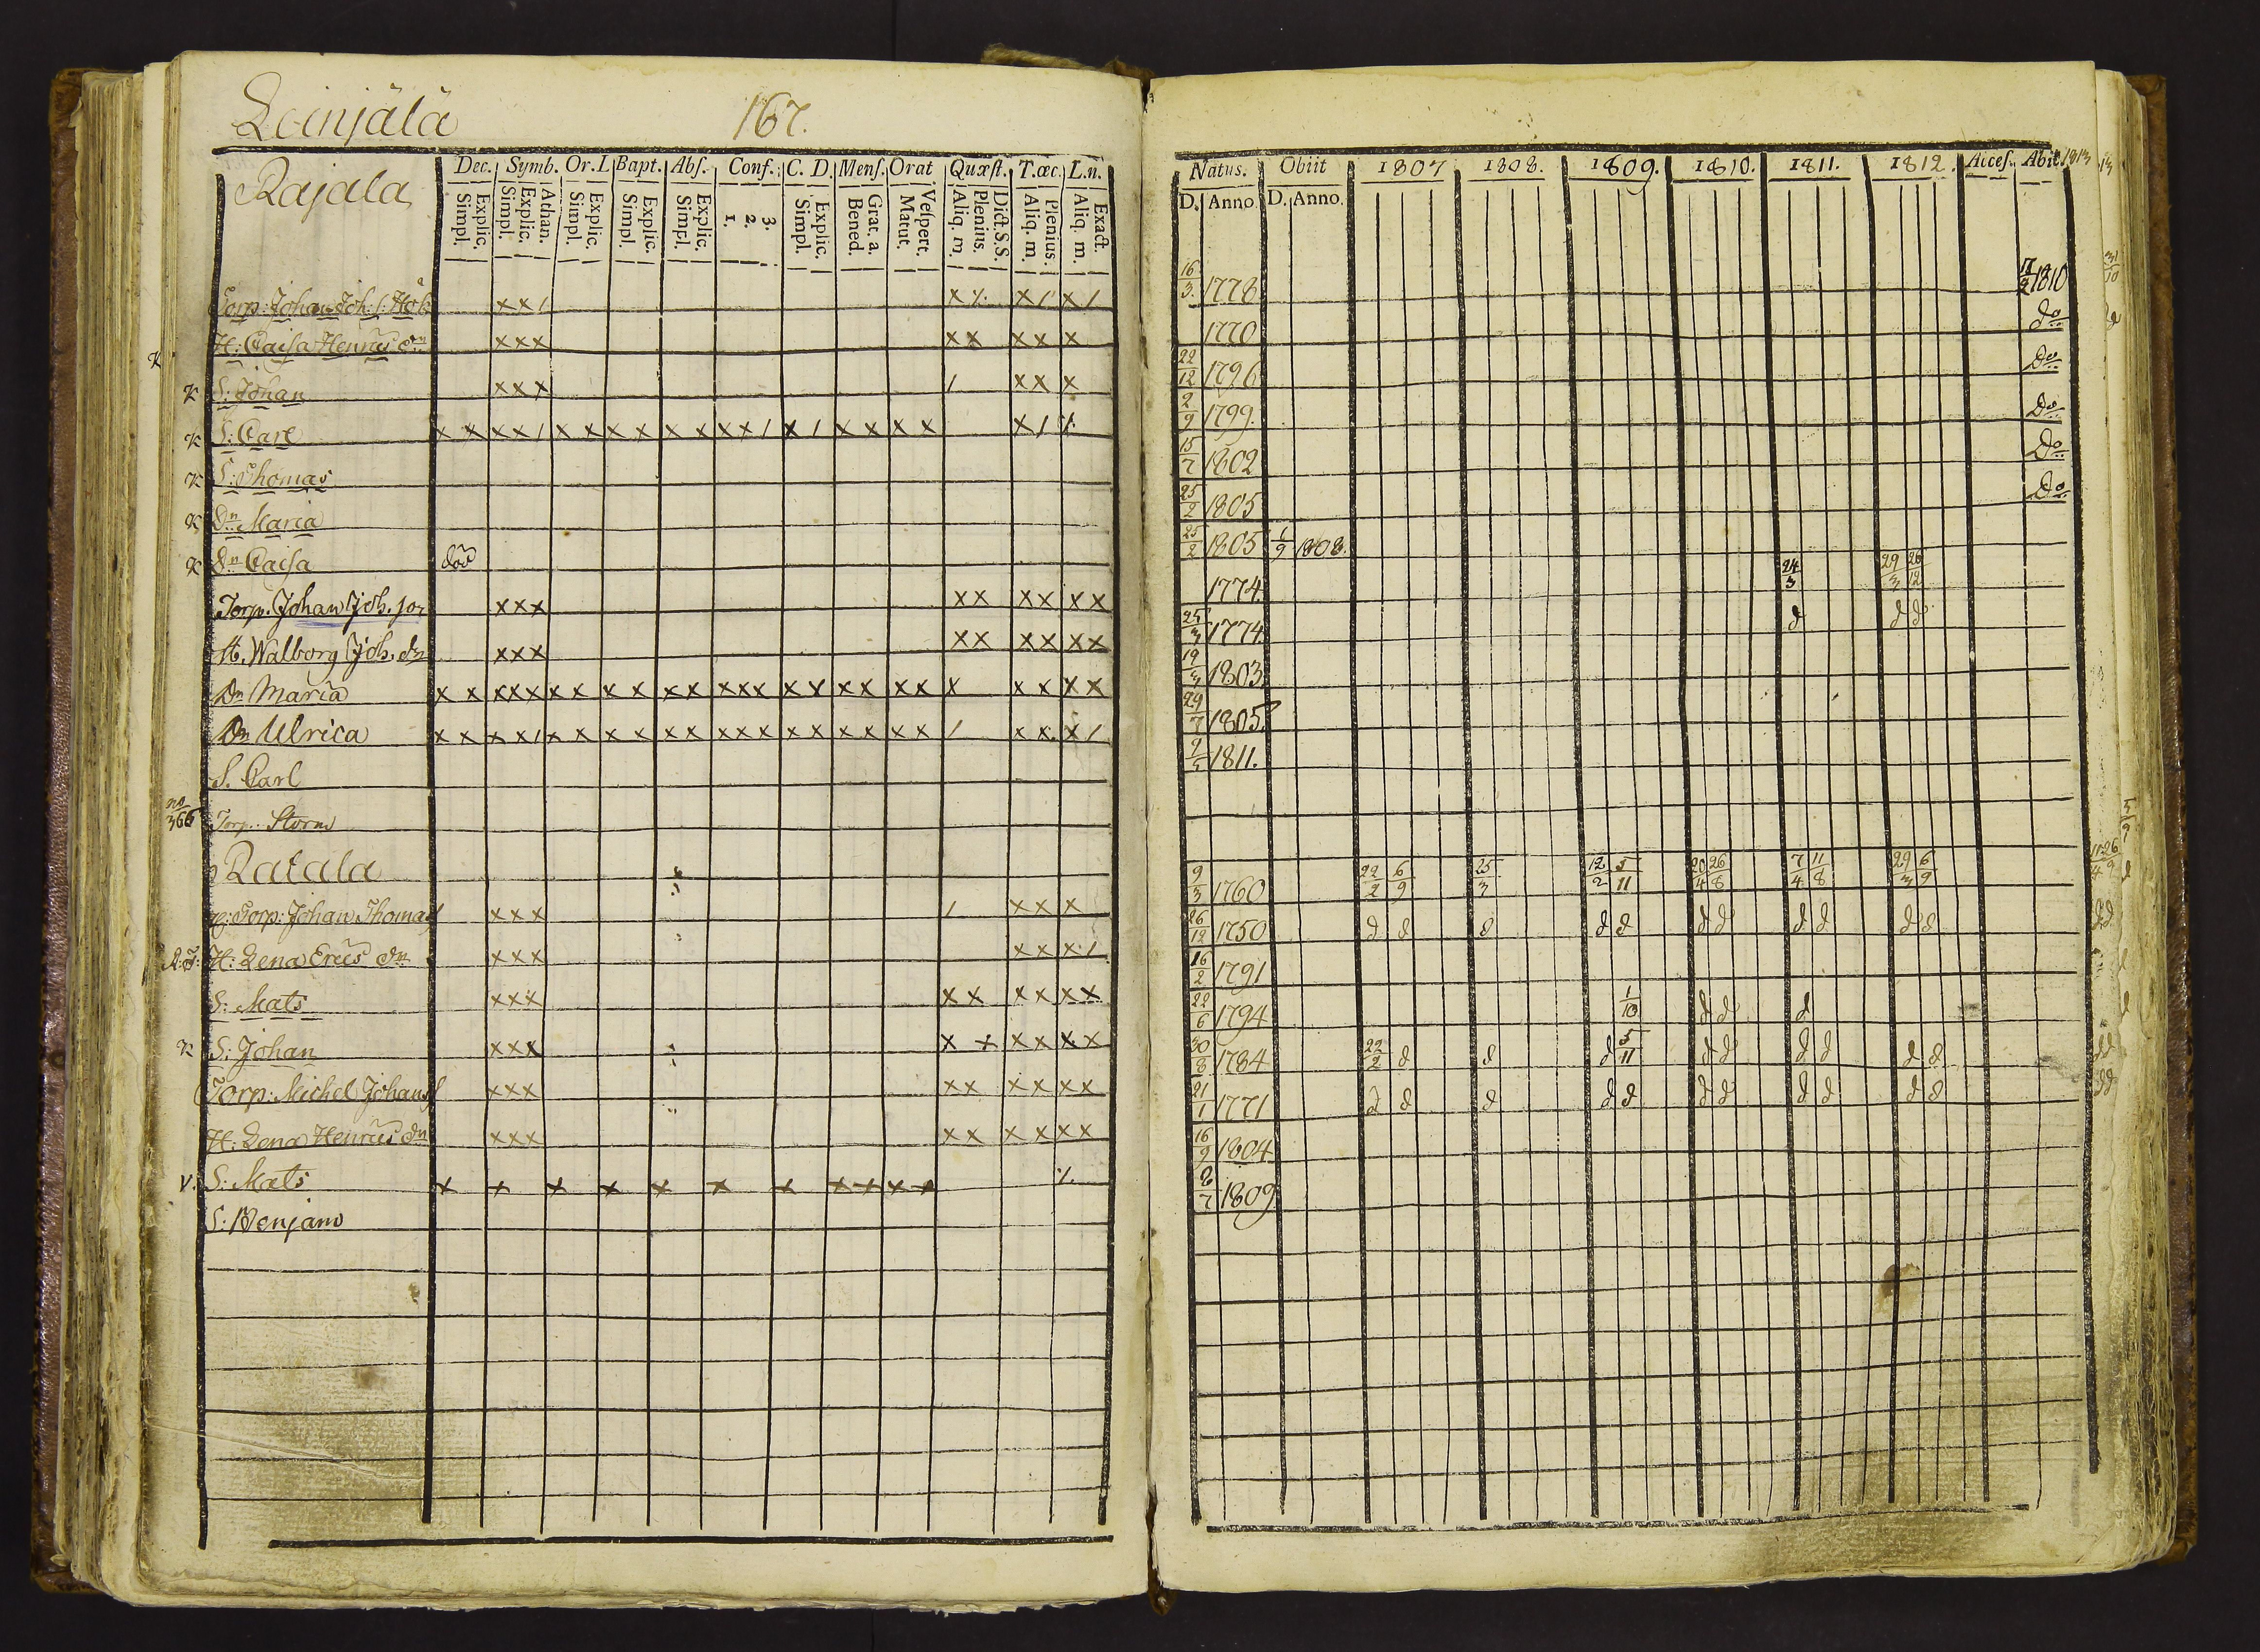 Leinjälä 167.
Rajala
Dec. Symb. Or. L Bapt. Abſ. Conf. C. D. Menſ. Orat Quæſt. T. œc. L. n.
Explic. Simpl. Athan. Explic. Simpl. Explic. Simpl. Explic. Simpl. Explic. Simpl. 3. 2. 1. Explic. Simpl. Grat. a. Bened. Veſpert. Matut. Dict. S. S. Plenius. Aliq. m. Plenius. Aliq. m. Exact. Aliq. m.
Torp: Johan Joh: s: Hök x x / x ⁒ x / x /
H: Caisa Henrics dr x x x x x x x x
K S: Johan x x x / x x x
K S: Carl x x x x / x x x x x x x x / x / x x x x x / ⁒
K S: Thomas
K Dr Maria
K Dr Caisa död
Torp. Johan Joh. son x x x x x x x x x
H. Walborg Joh. dr x x x x x x x x x
Dr Maria x x x x x x x x x x x x x x x x x x x x x x x x x
Dr Ulrica x x x x / x x x x x x x x x x x x x x x / x x x /
S. Carl
no 366 Torp. Storm
Ratala
Torp: Johan Thomas x x x / x x x
H: Lena Erics dr x x x x x x /
S: Mats x x x x x x x x x
K S: Johan x x x x x x x x x
Torp: Michel Johans x x x x x x x x x
H: Lena Henrics dr x x x x x x x x x
V. S: Mats x x x x x x x x x x x ⁒
S: Benjam
Natus. Obiit 1807 1808. 1809. 1810. 1811. 1812. Acceſ. Abit. 1813
D. Anno D. Anno.
16/3 1778 17/2 1810
1770 do
22/12 1796 Do
2/9 1799. Do
15/7 1802 Do
25/2 1805 Do
25/2 1805 1/9 1808.
1774. 24/3 29/3 26/12
25/3 1774 d d d
19/3 1803
29/7 1805
1811.
9/3 1760 22/2 6/9 25/3 12/2 5/11 20/4 26/8 7/4 11/8 29/3 6/9
26/12 1750 d d d d d d d d d d d
16/2 1791
22/6 1794 1/10 d d d
30/8 1784 22/2 d d d 5/11 d d d d d d
21/1 1771 d d d d d d d d d d d
16/9 1804
8/7 1809